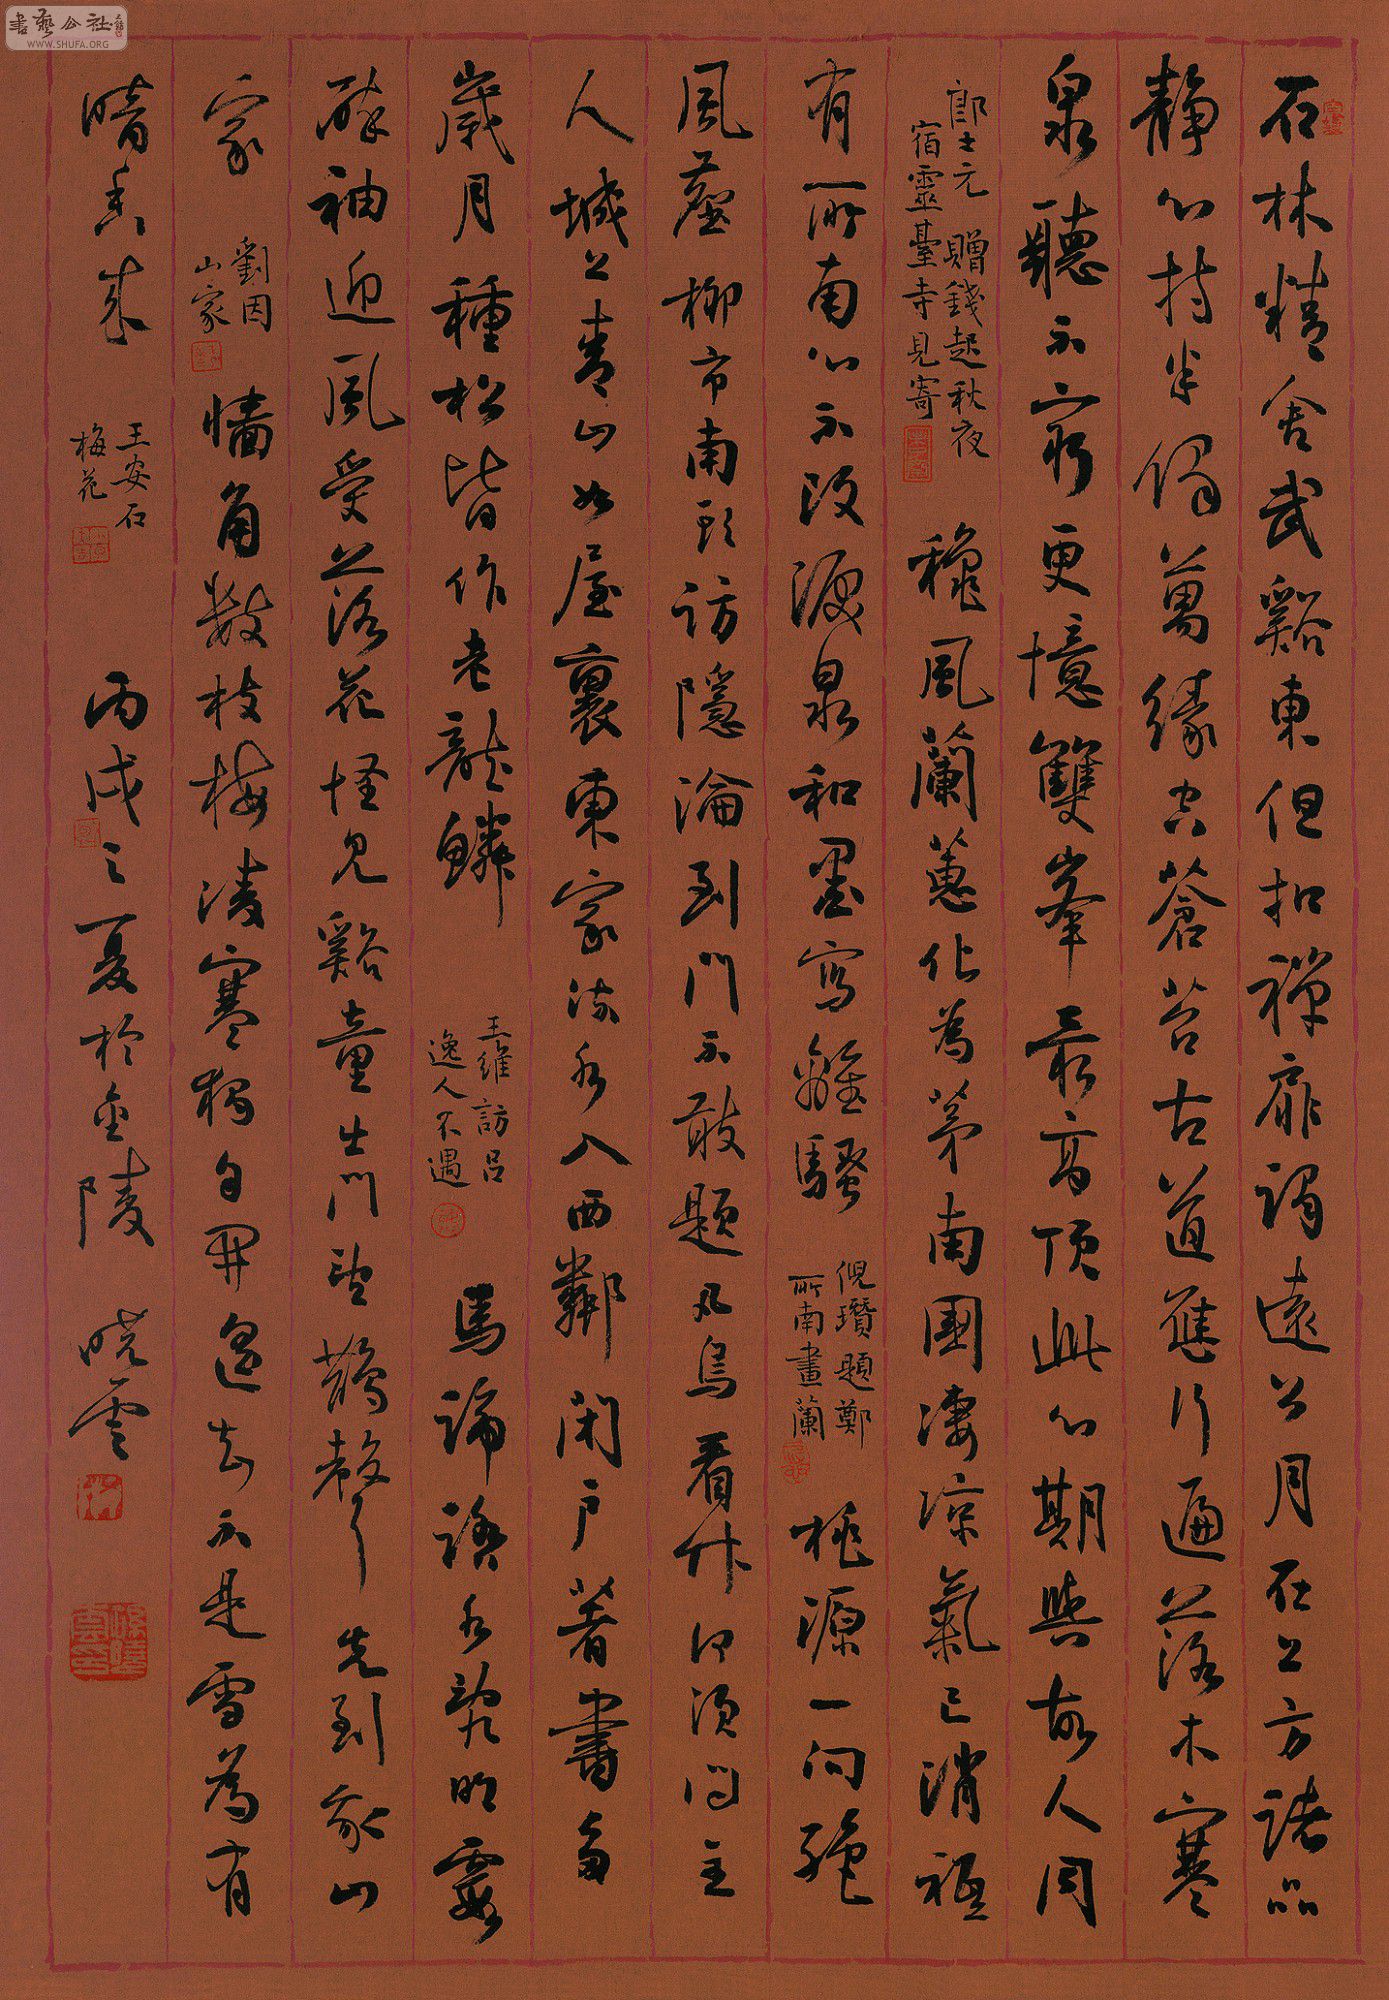 書藝公社
WWW.SHUFA.ORG
石林精舍武谿東但扣禪扉謁遠公月在上方諸品
靜心持半偈萬緣空蒼苔古道應行遍落木寒
泉聽不窮更憶雙峯最高頂此心期與故人同
郎士元 贈錢起秋夜
宿靈臺寺見寄
穐風蘭蕙化為茅南國淒涼氣已消祇
有所南心不改淚泉和墨寫離騷
倪瓚題鄭
所南畫蘭
桃源一向絕
風塵柳市南頭訪隱淪到門不敢題凡鳥看竹何須問主
人城上青山如屋裏東家流水入西鄰閉戶著書多
歲月種松皆作老龍鱗
王維 訪呂
逸人不遇
馬蹄踏水亂明霞
醉袖迎風受落花怪見谿童出門望鵲聲先到我山
家
劉因
山家
墻角數枝梅凌寒獨自開遥知不是雪為有
暗香來
王安石
梅花
丙戌之夏於金陵 曉雲